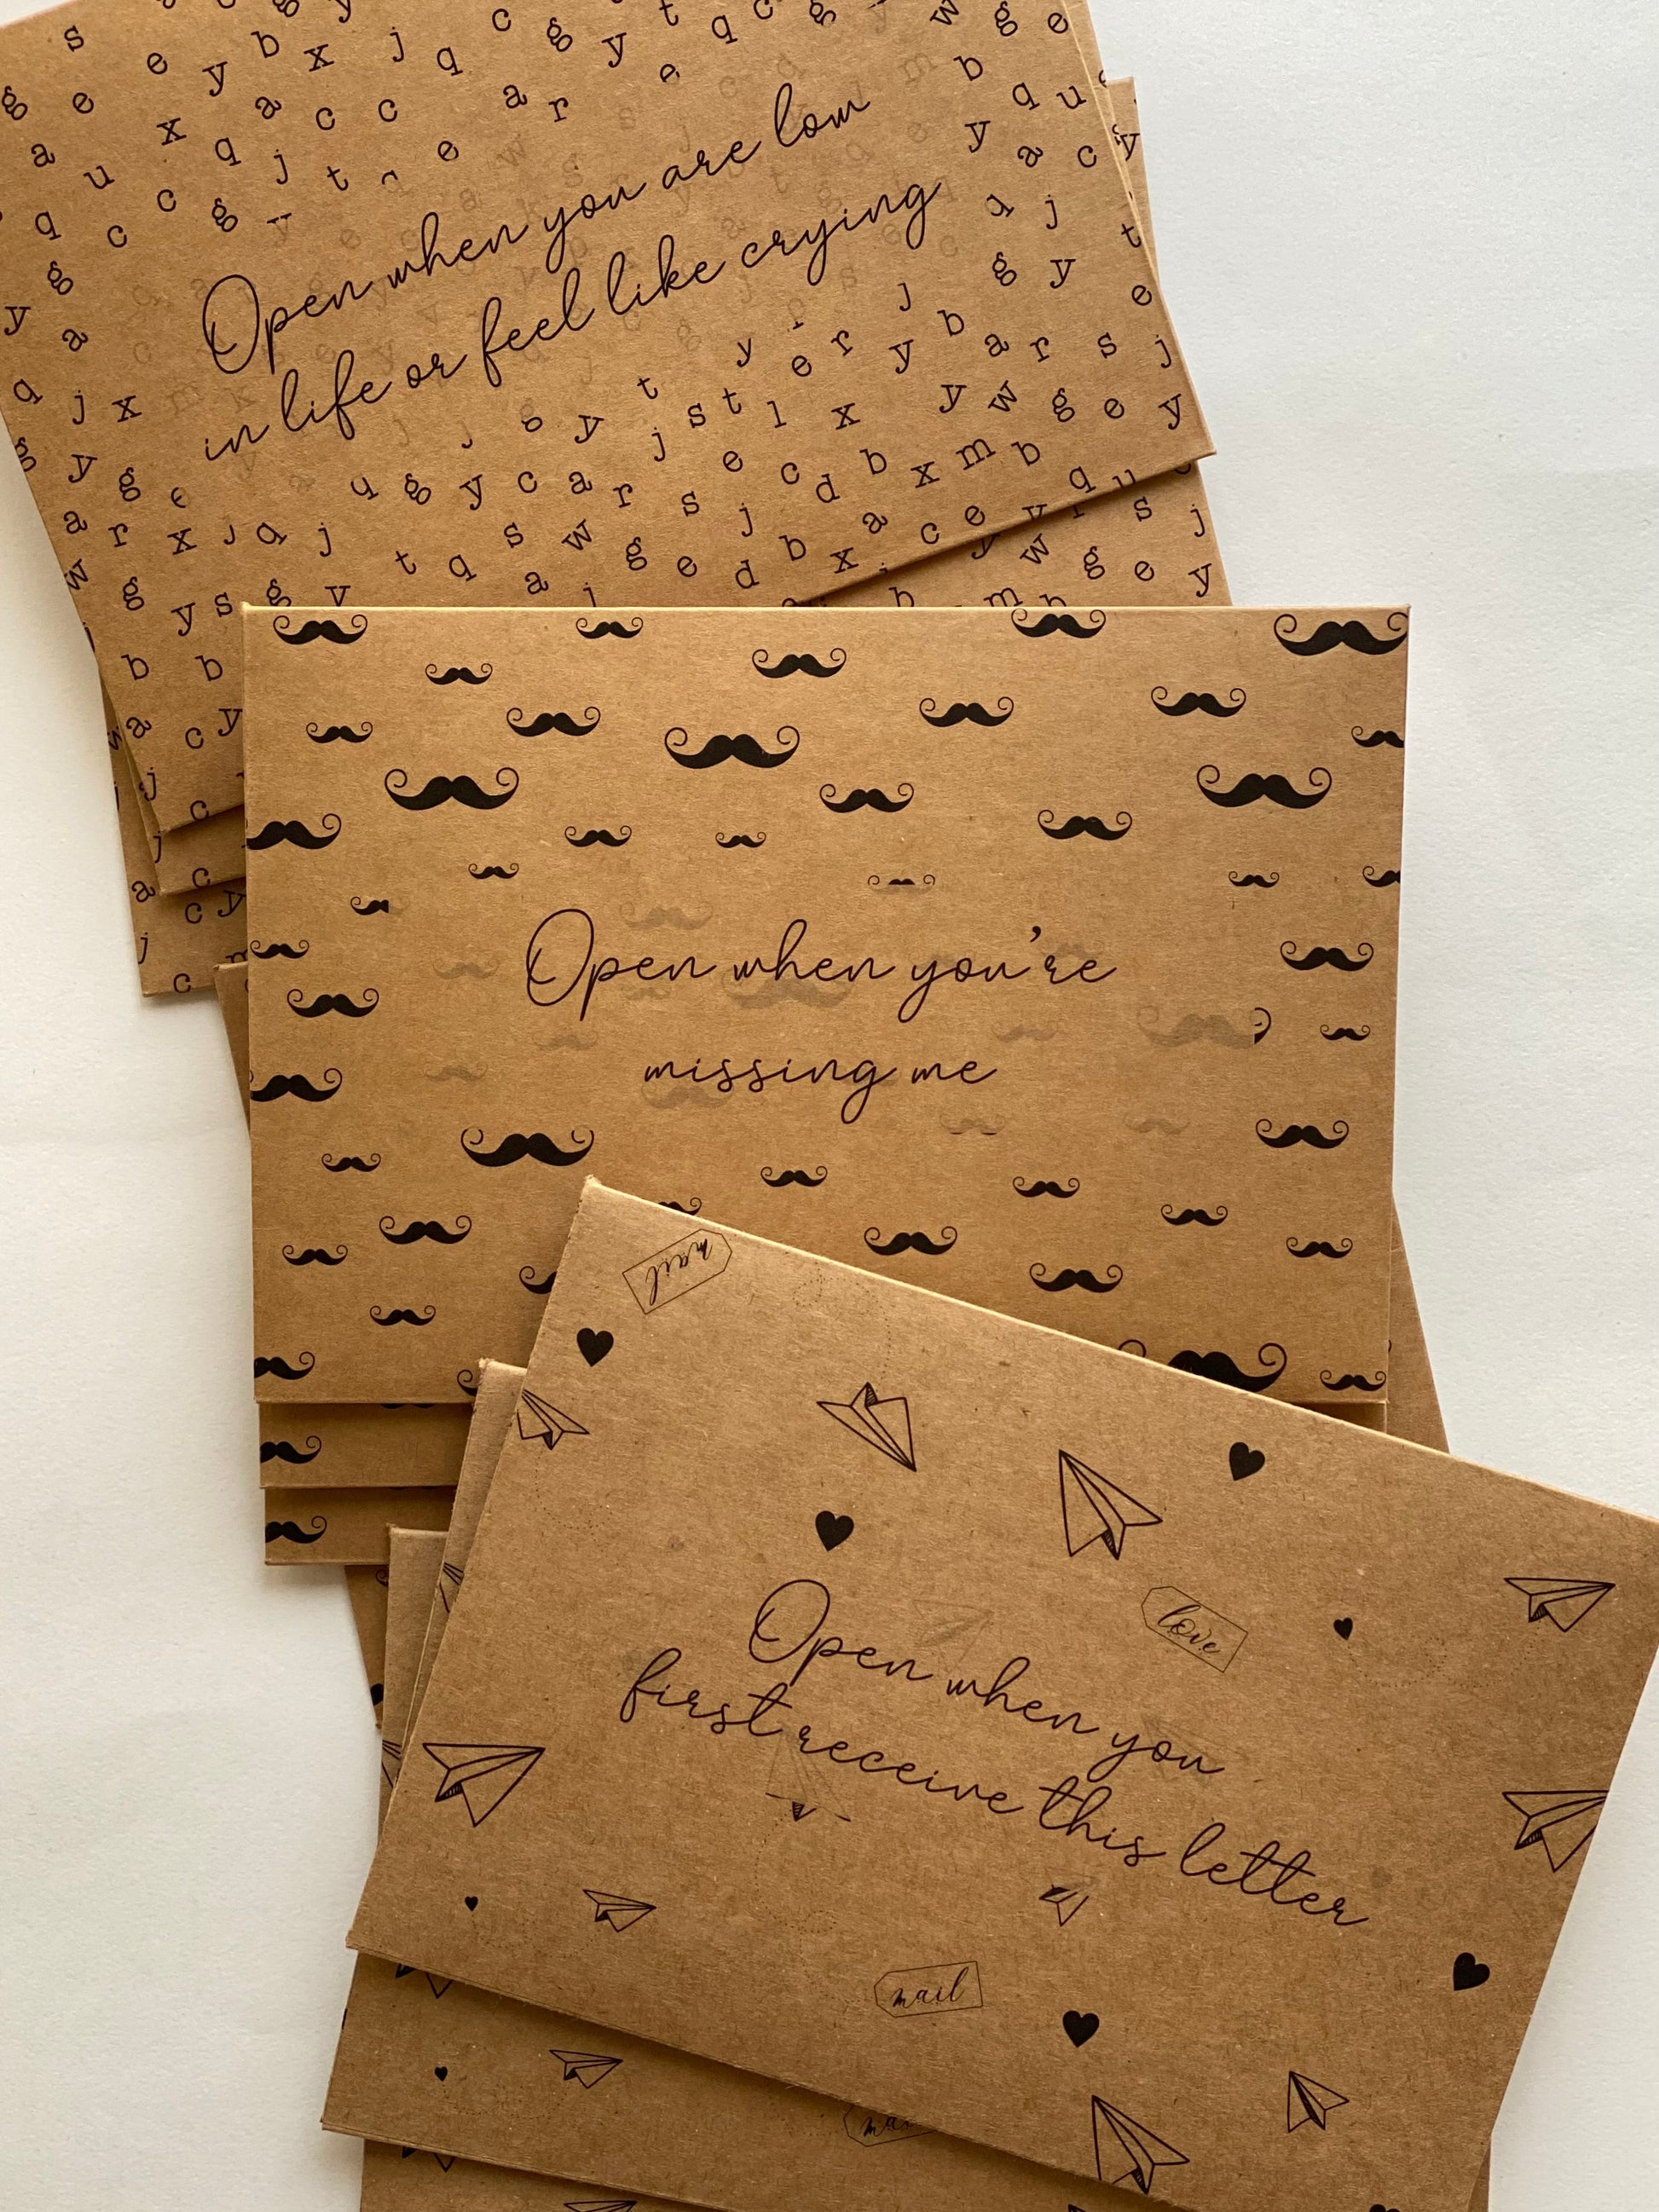 Open when you are low
in life or feel like crying
Open when you're
missing me
mail
love
Open when you
first receive this letter
mail